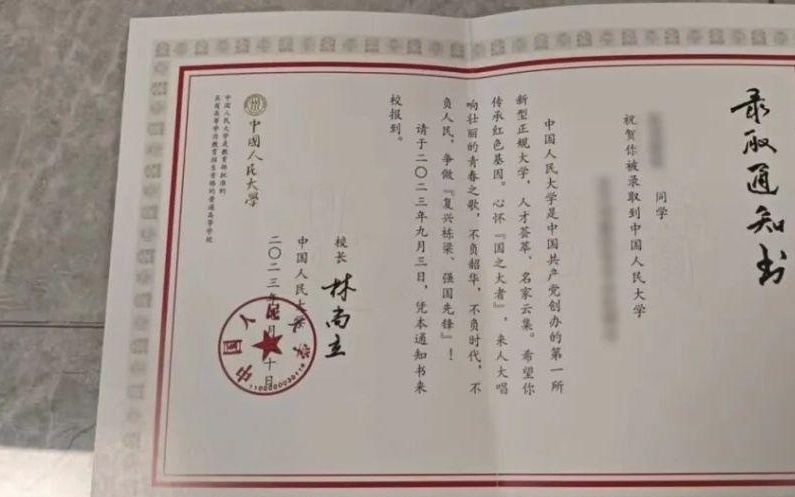 录取通知书
同学
祝贺你被录取到中国人民大学
中国人民大学是中国共产党创办的第一所
新型正规大学，人才荟萃、名家云集。希望你
传承红色基因。心怀『国之大者』，来人大唱
响壮丽的青春之歌，不负韶华，不负时代，不
负人民，争做『复兴栋梁、强国先锋』！
请于二〇二三年九月三日，凭本通知书来
校报到。
校长 林尚立
中国人民大学
二〇二三年 月 十日
中国人民大学
中国人民大学是教育部批准的
具有高等学历教育招生资格的普通高等学校